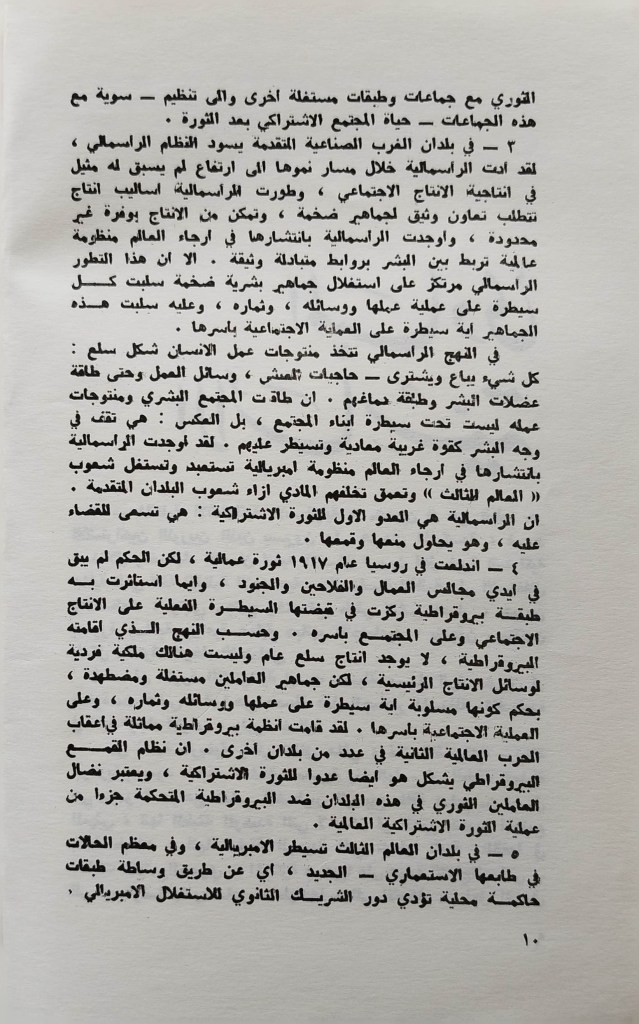 الثوري مع جماعات وطبقات مستغلة اخرى والى تنظيم — سوية مع
هذه الجماعات — حياة المجتمع الاشتراكي بعد الثورة .
٣ — في بلدان الغرب الصناعية المتقدمة يسود النظام الراسمالي ،
لقد ادت الراسمالية خلال مسار نموها الى ارتفاع لم يسبق له مثيل
في انتاجية الانتاج الاجتماعي ، وطورت الراسمالية اساليب انتاج
تتطلب تعاون وثيق لجماهير ضخمة ، وتمكن من الانتاج بوفرة غير
محدودة ، واوجدت الراسمالية بانتشارها في ارجاء العالم منظومة
عالمية تربط بين البشر بروابط متبادلة وثيقة . الا ان هذا التطور
الراسمالي مرتكز على استغلال جماهير بشرية ضخمة سلبت كل
سيطرة على عملية عملها ووسائله ، وثماره ، وعليه سلبت هذه
الجماهير اية سيطرة على العماية الاجتماعية باسرها .
في النهج الراسمالي تتخذ منتوجات عمل الانسان شكل سلع :
كل شيء يباع ويشترى — حاجيات العيش ، وسائل العمل وحتى طاقة
عضلات البشر وطبقة دماغهم . ان طاقات المجتمع البشري ومنتوجات
عمله ليست تحت سيطرة ابناء المجتمع ، بل العكس : هي تقف في
وجه البشر كقوة غريبة معادية وتسيطر عليهم . لقد اوجدت الراسمالية
بانتشارها في ارجاء العالم منظومة امبريالية تستعبد وتستغل شعوب
« العالم الثالث » وتعمق تخلفهم المادي ازاء شعوب البلدان المتقدمة .
ان الراسمالية هي العدو الاول للثورة الاشتراكية : هي تسعى للقضاء
عليه ، وهو يحاول منعها وقمعها .
٤ — اندلعت في روسيا عام ١٩١٧ ثورة عمالية ، لكن الحكم لم يبق
في ايدي مجالس العمال والفلاحين والجنود ، وايما استاثرت به
طبقة بيروقراطية ركزت في قبضتها السيطرة الفعلية على الانتاج
الاجتماعي وعلى المجتمع باسره . وحسب النهج الذي اقامته
البيروقراطية ، لا يوجد انتاج سلع عام وليست هنالك ملكية فردية
لوسائل الانتاج الرئيسية ، لكن جماهير العاملين مستغلة ومضطهدة ،
بحكم كونها مسلوبة اية سيطرة على عملها ووسائله وثماره ، وعلى
العملية الاجتماعية باسرها . لقد قامت انظمة بيروقراطية مماثلة في اعقاب
الحرب العالمية الثانية في عدد من بلدان اخرى . ان نظام القمع
البيروقراطي يشكل هو ايضا عدوا للثورة الاشتراكية ، ويعتبر نضال
العاملين الثوري في هذه البلدان ضد البيروقراطية المتحكمة جزءا من
عملية الثورة الاشتراكية العالمية .
٥ — في بلدان العالم الثالث تسيطر الامبريالية ، وفي معظم الحالات
في طابعها الاستعماري — الجديد ، اي عن طريق وساطة طبقات
حاكمة محلية تؤدي دور الشريك الثانوي للاستغلال الامبريالي .
١٠